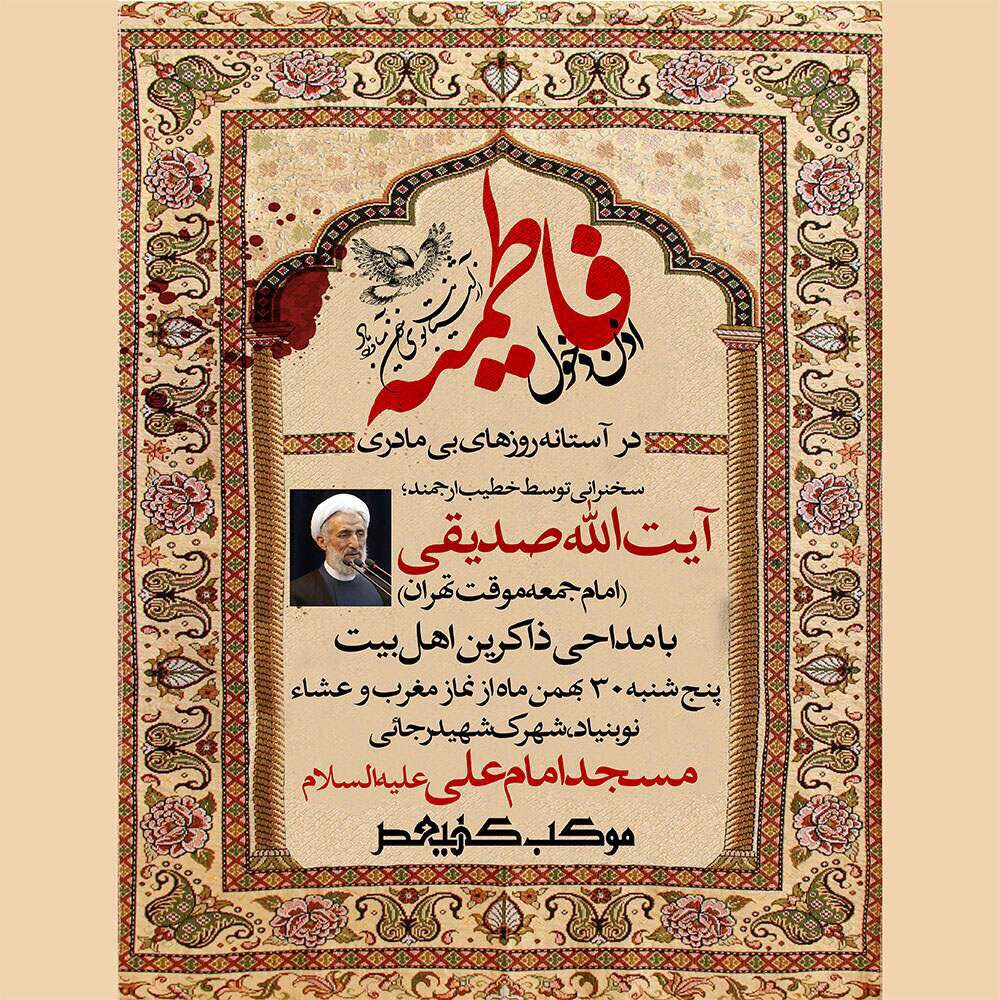 اذن دخول فاطمه
در آستانه روزهای بی مادری
سخنرانی توسط خطیب ارجمند؛
آیت الله صدیقی
(امام جمعه موقت تهران)
با مداحی ذاکرین اهل بیت
پنج شنبه ۳۰ بهمن ماه از نماز مغرب و عشاء
نوبنیاد، شهرک شهید رجائی
مسجد امام علی علیه السلام
موکب